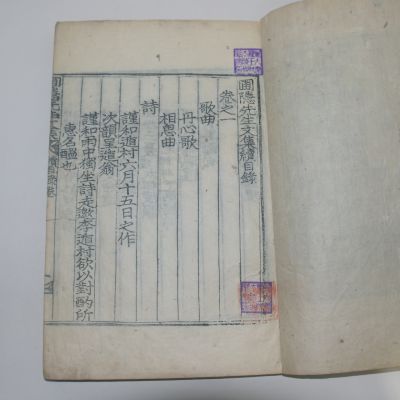 圃隱先生文集續目錄
卷之一
歌曲
丹心歌
相思曲
詩
謹和遁村六月十五日之作
次韻呈遁翁
謹和雨中獨坐詩走邀李遁村欲以對酌所
惠名醞也